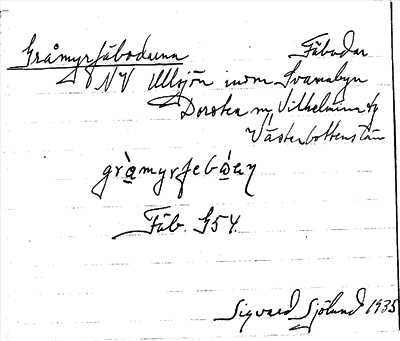 Gråmyrfäbodarna Fäbodar
NV Ullsjön inom Svanabyn
Dorotea m, Vilhelmina tg
Västerbottens län
Fäb. 954.
Sigvard Sjölund 1935